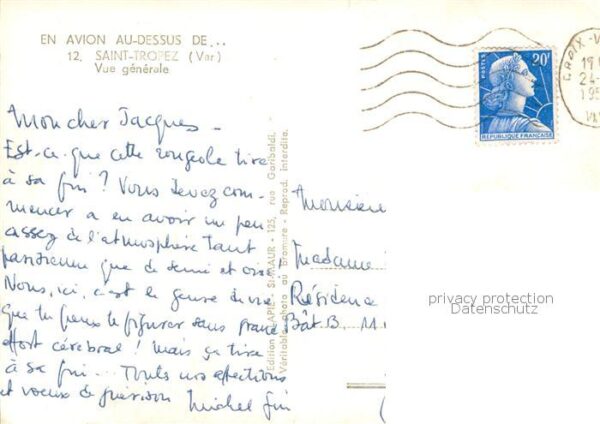 EN AVION AU-DESSUS DE...
12. SAINT-TROPEZ (Var)
Vue générale
Mon cher Jacques -
Est-ce que cette rougeole tire
à sa fin ? Vous devez com-
mencer a en avoir un peu
assez de l'atmosphère tant
parisienne que de
Nous, ici, c'est le genre de vie
que tu peux te figurer sans grand
effort cérébral ! Mais ça tire
à sa fin... Toutes nos affections
et voeux de guérison Michel
Edition "RAPIE" - St-MAUR - 125, rue Garibaldi.
Véritable photo au bromure - Reprod. interdite.
POSTES 20F
REPUBLIQUE FRANÇAISE
CROIX - V
19 H
24-
195
VAR
Monsieur
Madame
Résidence
Bât B.
privacy protection
Datenschutz